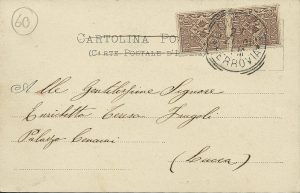 60
CARTOLINA PO
(CARTE POSTALE D'I
FERROVIA
Alle Gentilissime Signore
Enrichetta Teresa
Palazzo Cenami
Lucca